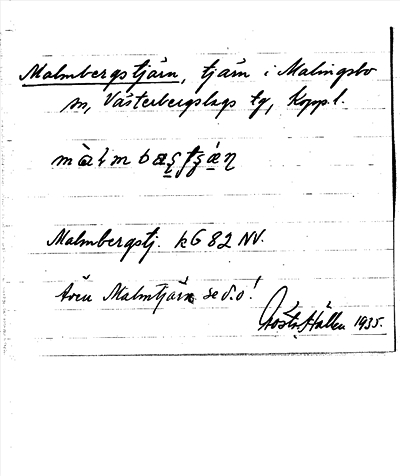 Malmbergstjärn, tjärn i Malingsbo
sn, Västerbergslags tg, Kopp.l.
Malmbergstj. k G 82 NV.
Även Malmtjärn se d.o!
Gösta Hållen 1935.